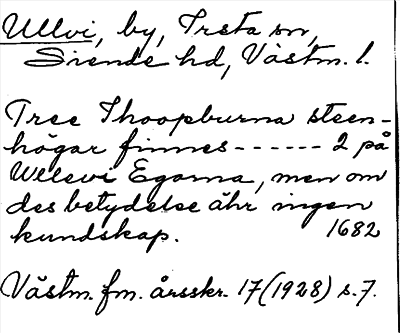 Ullvi, by, Irsta sn,
Siende hd, Västm. l.
Tree Ihoopburna steen-
högar finnes ------ 2 på
Ulevi Egorna, men om
des betydelse ähr ingen
kundskap. 1682
Västm. fm. årsskr. 17 (1928) s. 7.